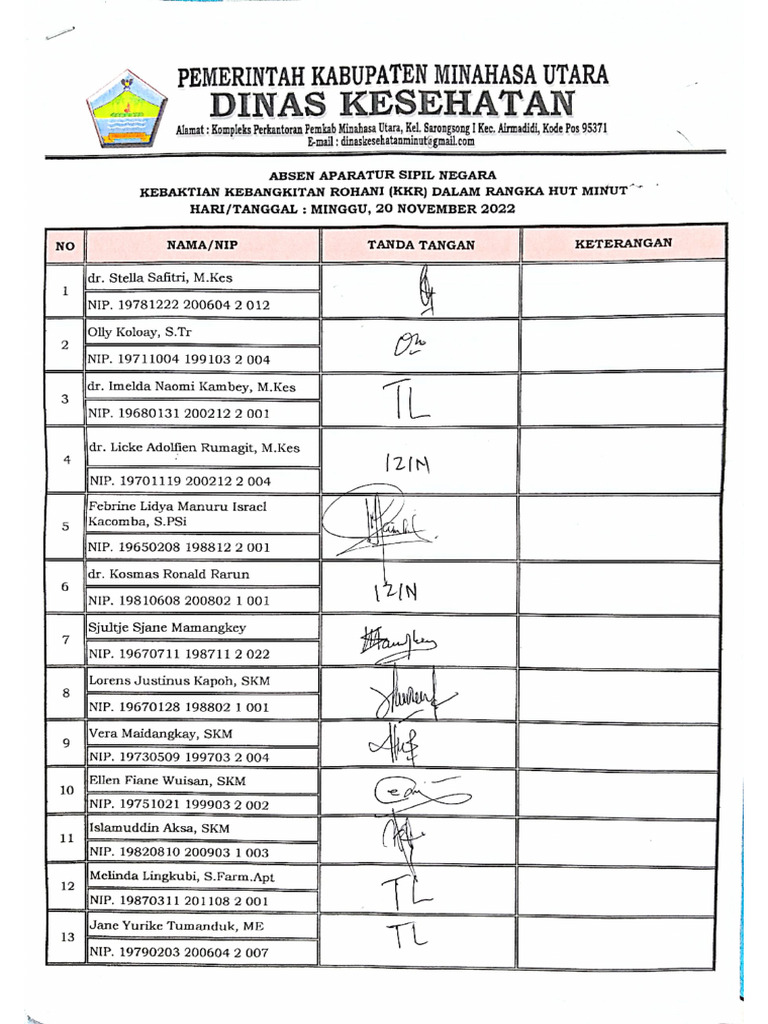 PEMERINTAH KABUPATEN MINAHASA UTARA
DINAS KESEHATAN
Alamat : Kompleks Perkantoran Pemkab Minahasa Utara, Kel. Sarongsong I Kec. Airmadidi, Kode Pos 95371
E-mail : dinaskesehatanminut@gmail.com
ABSEN APARATUR SIPIL NEGARA
KEBAKTIAN KEBANGKITAN ROHANI (KKR) DALAM RANGKA HUT MINUT
HARI/TANGGAL : MINGGU, 20 NOVEMBER 2022
NO NAMA/NIP TANDA TANGAN KETERANGAN
1 dr. Stella Safitri, M.Kes
NIP. 19781222 200604 2 012
2 Olly Koloay, S.Tr
NIP. 19711004 199103 2 004
3 dr. Imelda Naomi Kambey, M.Kes TL
NIP. 19680131 200212 2 001
4 dr. Licke Adolfien Rumagit, M.Kes IZIN
NIP. 19701119 200212 2 004
5 Febrine Lidya Manuru Israel
Kacomba, S.PSi
NIP. 19650208 198812 2 001
6 dr. Kosmas Ronald Rarun IZIN
NIP. 19810608 200802 1 001
7 Sjultje Sjane Mamangkey
NIP. 19670711 198711 2 022
8 Lorens Justinus Kapoh, SKM
NIP. 19670128 198802 1 001
9 Vera Maidangkay, SKM
NIP. 19730509 199703 2 004
10 Ellen Fiane Wuisan, SKM
NIP. 19751021 199903 2 002
11 Islamuddin Aksa, SKM
NIP. 19820810 200903 1 003
12 Melinda Lingkubi, S.Farm.Apt TL
NIP. 19870311 201108 2 001
13 Jane Yurike Tumanduk, ME TL
NIP. 19790203 200604 2 007